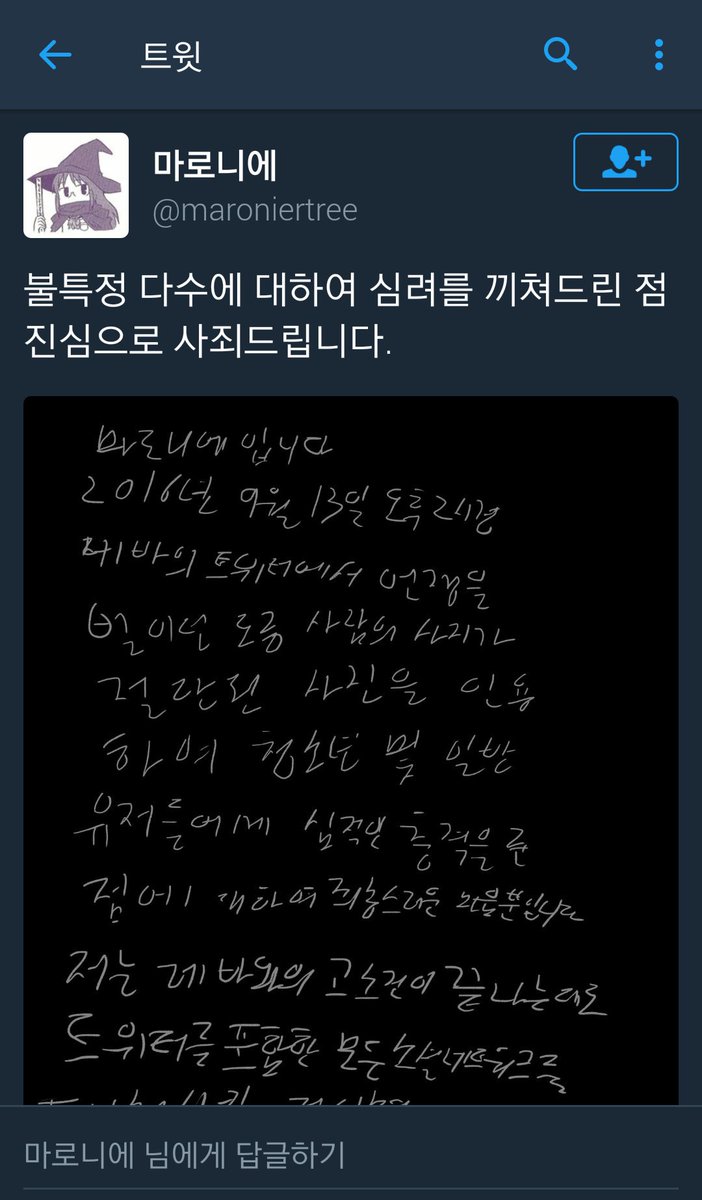 트윗
마로니에
@maroniertree
불특정 다수에 대하여 심려를 끼쳐드린 점
진심으로 사죄드립니다.
마로니에 입니다
2016년 9월 13일 오후 2시경
레바의 트위터에서 언쟁을
벌이던 도중 사람의 사지가
절단된 사진을 인용
하여 청소년 및 일반
유저들에게 심적인 충격을 준
점에 대하여 죄송스러운 마음뿐입니다
저는 레바와의 고소건이 끝나는대로
트위터를 포함한 모든 소셜네트워크를
마로니에 님에게 답글하기